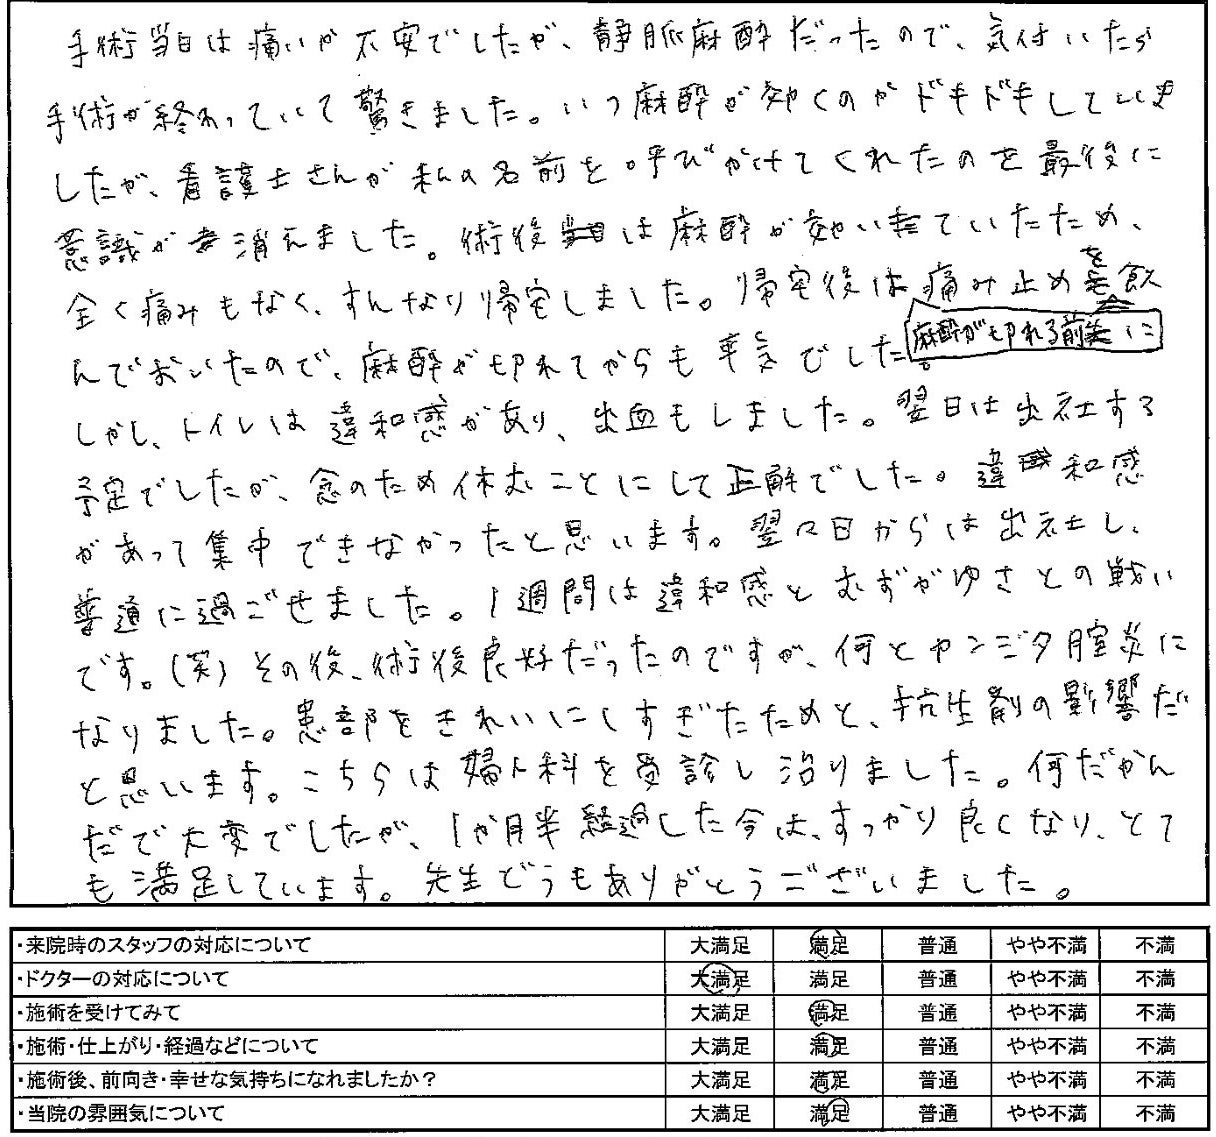 手術当日は痛いか不安でしたが、静脈麻酔だったので、気付いたら
手術が終わっていて驚きました。いつ麻酔が効くのかドキドキしていま
したが、看護士さんが私の名前を呼びかけてくれたのを最後に
意識が消えました。術後は麻酔が効いていたため、
全く痛みもなく、すんなり帰宅しました。帰宅後は痛み止めを飲
麻酔が切れる前に
んでおいたので、麻酔が切れてからも平気でした。
しかし、トイレは違和感があり、出血もしました。翌日は出社する
予定でしたが、念のため休むことにして正解でした。違和感
があって集中できなかったと思います。翌々日からは出社し、
普通に過ごせました。1週間は違和感とむずがゆさとの戦い
です。(笑)その後、術後良好だったのですが、何とカンジタ膣炎に
なりました。患部をきれいにしすぎたためと、抗生剤の影響だ
と思います。こちらは婦人科を受診し治りました。何だかん
だで大変でしたが、1か月半経過した今は、すっかり良くなり、とて
も満足しています。先生どうもありがとうございました。
・来院時のスタッフの対応について 大満足 満足 普通 やや不満 不満
・ドクターの対応について 大満足 満足 普通 やや不満 不満
・施術を受けてみて 大満足 満足 普通 やや不満 不満
・施術・仕上がり・経過などについて 大満足 満足 普通 やや不満 不満
・施術後、前向き・幸せな気持ちになれましたか？ 大満足 満足 普通 やや不満 不満
・当院の雰囲気について 大満足 満足 普通 やや不満 不満